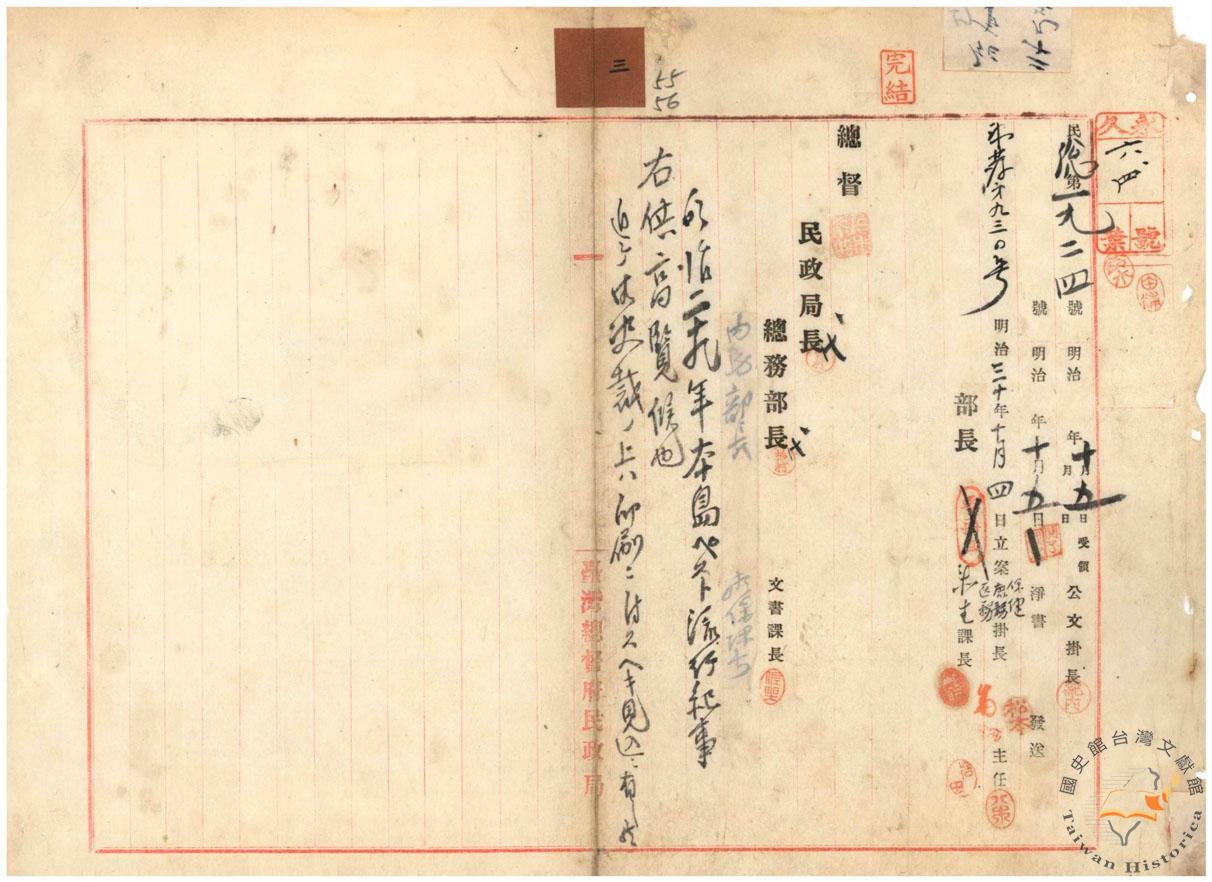 三
55
56
完結
永久
六、四
乙
號
葉
民總第一九二四號 明治 年十月九日受領 公文掛長
號 明治 年十月九日 淨書 發送
衛 第九三〇号 明治三十年十月四日立案 保健 医務 掛長 主任
部長 衛生課長
總督
民政局長 代
總務部長 代 文書課長
内務部長
明治二十九年本島ペスト流行紀事
右供高覧候也
追テ御決裁ノ上ハ印刷ニ付スヘキ見込ニ有之候
臺灣總督府民政局
國史館台灣文獻館
Taiwan Historica